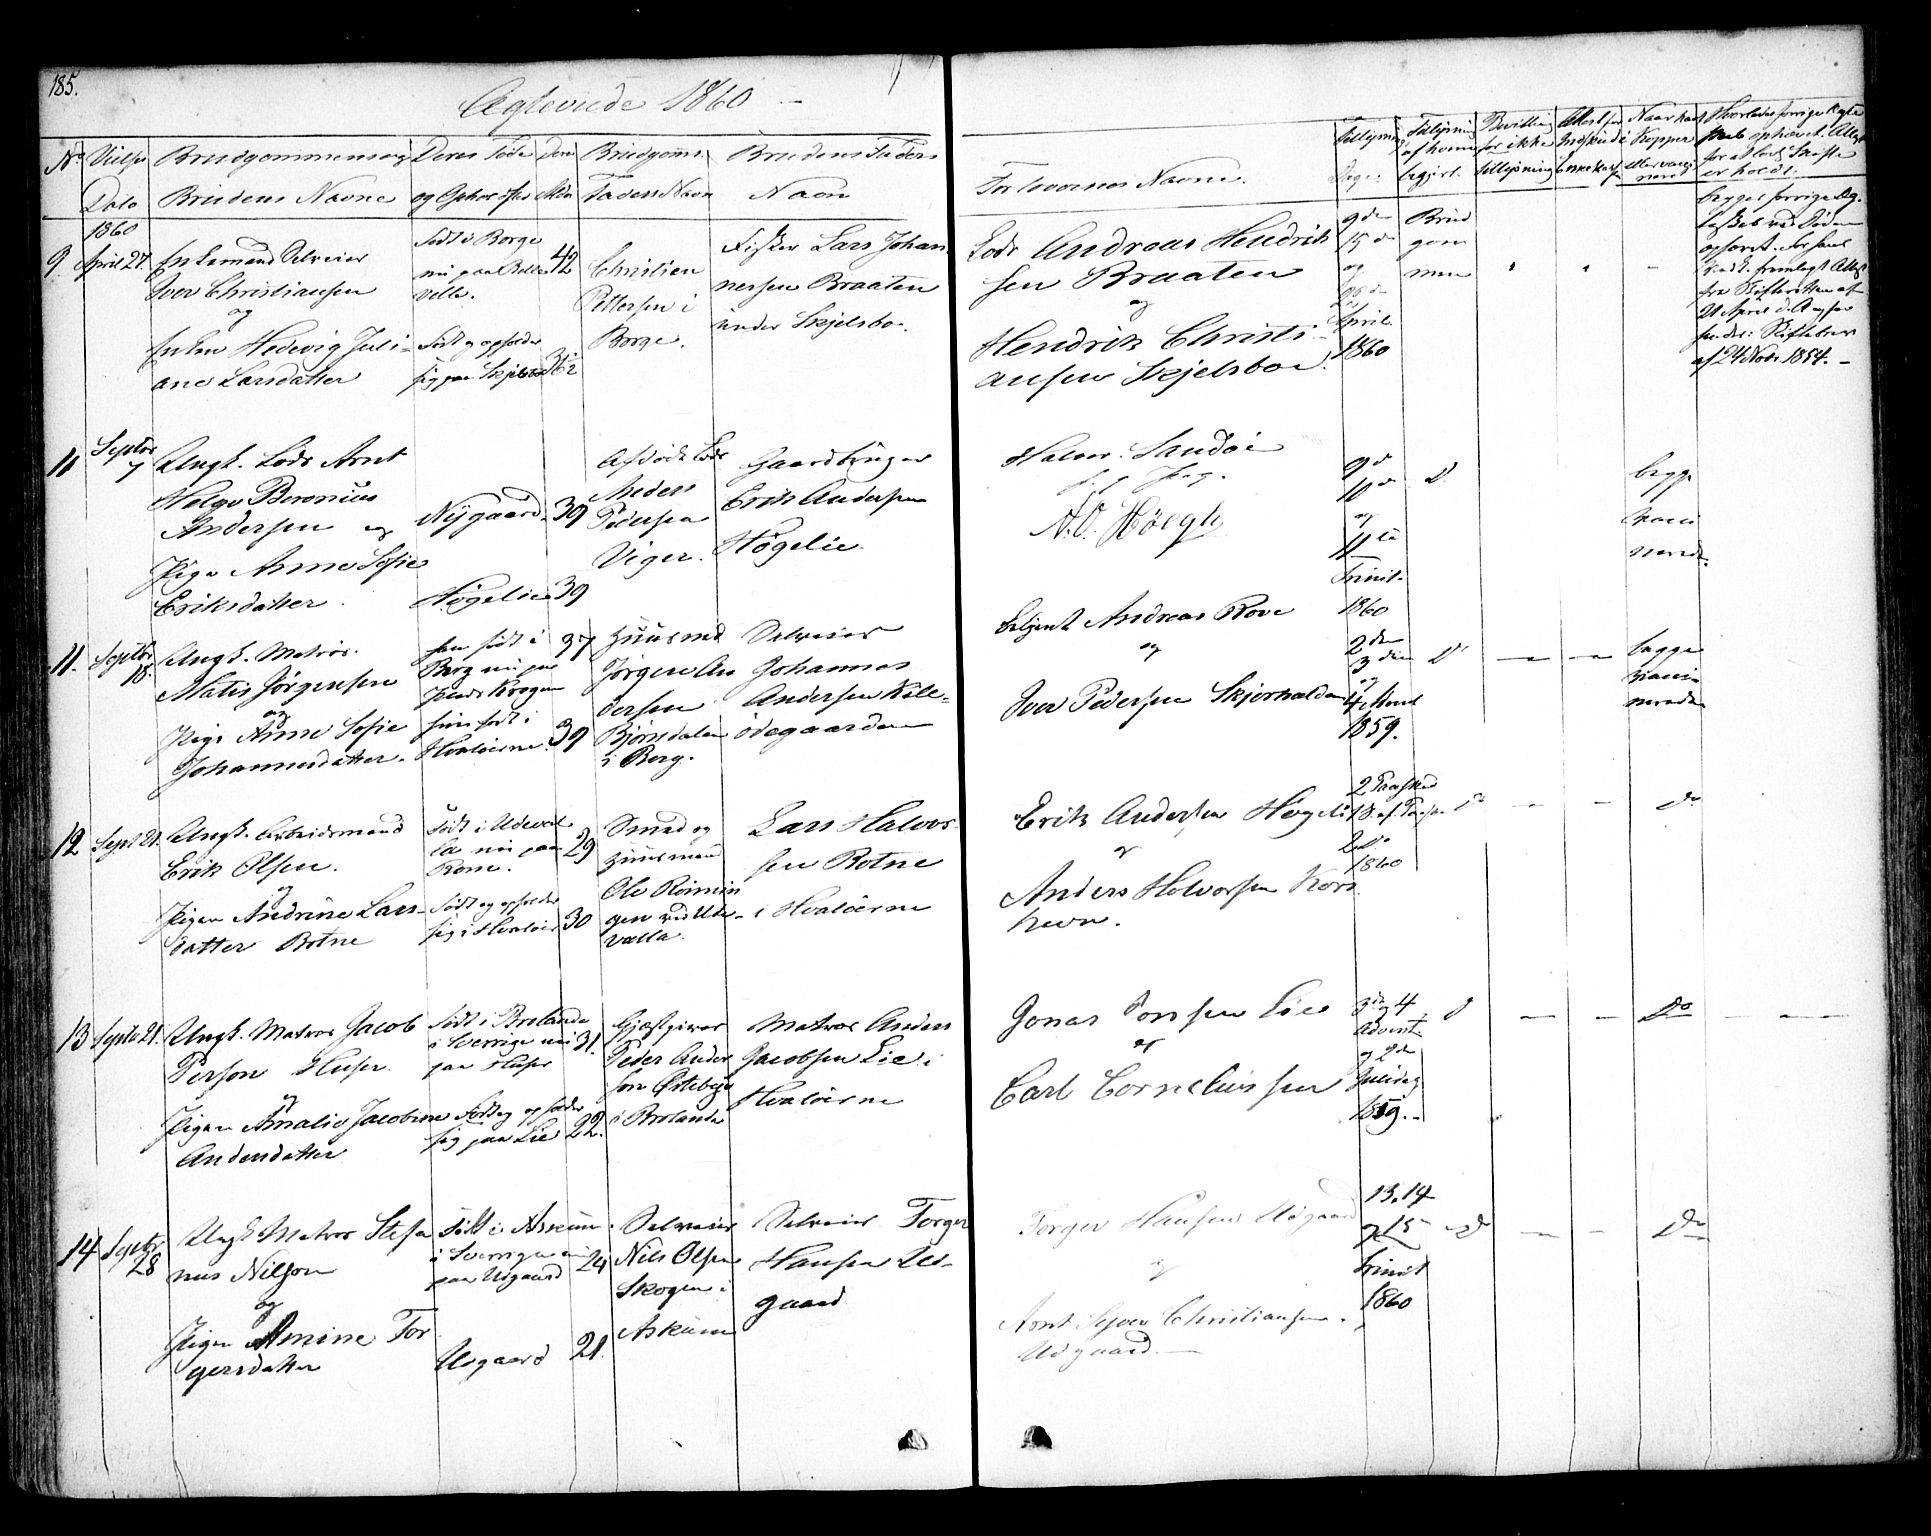 185.
Ægteviede 1860
No Vielses Dato
Brudgommens og Brudens Navne
Deres Føde og Opholdssted
Deres Alder
Brudgoms. Faders Navn
Brudens Faders Navn
Forlovernes Navne.
Tillysnings Dage.
Tillysning af hvem begjert.
Bevilling for ikke tillysning
Naar havt Kopper eller vacci neret
1860
9. April 27.
Enkemand Selveier
Iver Christiansen
og
Enken Hedevig Juli-
ane Larsdatter
Født i Borge
nu paa
ville.
42
Født og opholder
sig paa Skjelsbo
36½
Christian
Pettersen i
Borge.
Fisker Lars Johan
nersen Braaten
under Skjelsbo.
Lods Andreas Hendrik
sen Braaten
og
Hendrik Christi-
ansen Skjelsboe.
2den
15de
og
April
1860
Brud
gom
men
begges forrige Æg-
teskab ved Døden
ophævet. for hans
fra Skifteretten af
21 April
af 24 Nobr. 1854.-
11 Septbr 7
Ungk. Lods Arnt
Helge Beronius
Andersen og
Pige Anne Sofie
Eriksdatter
Nygaard. 39
Høgelie 39
Afdøde Lods
Anders
Pedersen
Viger.
Gaardbruger
Erik Andersen
Høgelie.
Halvor. Sandøe
N.O. Høegh
9d
10de
og
11te
Trinit.
1860
Do
begge
vacci
nerede.
11. Septbr 18.
Ungk. Matros.
Matis Jørgensen
og
Pige Anne Sofie
Johannesdatter.
han født i
Berg nu paa
Krogen
hun født i
Hvaløerne.
37
39
Huusmd
Jørgen An
dersen
Bjørnsdalen
i Berg.
Selveier
Johannes
Andersen Kile-
ødegaarden
Andreas Rove
og
Iver Pedersen Skjærhalden
2den
3dien
og
4 Advent
1859.
Do
begge
vacci-
nerede
12. Sept 21.
Ungk. Arbeidsmand
Erik Olsen.
og
Pigen Andrine Lars-
datter Botne
Født i Udeval
la nu paa
Rove.
29
Født og opholder
sig i Hvaløer 30
Smed og
Huusmand
Ole Röinin
gen ved Ude-
valla.
Lars Halvor-
sen Botne
i Hvaløerne
Erik Andersen Høgeli
og
Anders Halvorsen Kors
havn.
2 Paasked
1860
Do
Do
13 Septb 21.
Ungk. Matros Jacob
Person Huser.
og
Pigen Amalie Jacobine
Andersdatter
Født i Brolanda
i Sverrige nu
paa Huser
31.
Født og opholder
sig paa Lie 22.
Gjæstgiver
Peder Ander
son Østebye
i Brolanda
Matros Anders
Jacobsen Lie i
Hvaløerne
Jonas Torssen Lie
og
Carl Corneliussen
3die og 4
Advent
og 2den
Juledag
1859.-
Do
Do
14 Septbr 28
Ungk. Matros Stefa
nus Nilsson
og
Pigen Amine Tor
gersdatter
Født i Askum
i Sverrige nu
paa Udgaard 24
Udgaard 21.
Selveier
Nils Olsen
Skogen i
Askum
Selveier Torger
Hansen Ud-
gaard
Torger Hansen Udgaard
og
Arnt Sever Christiansen
Udgaard.
13. 14
og 15
Trinit
1860
Do
Do